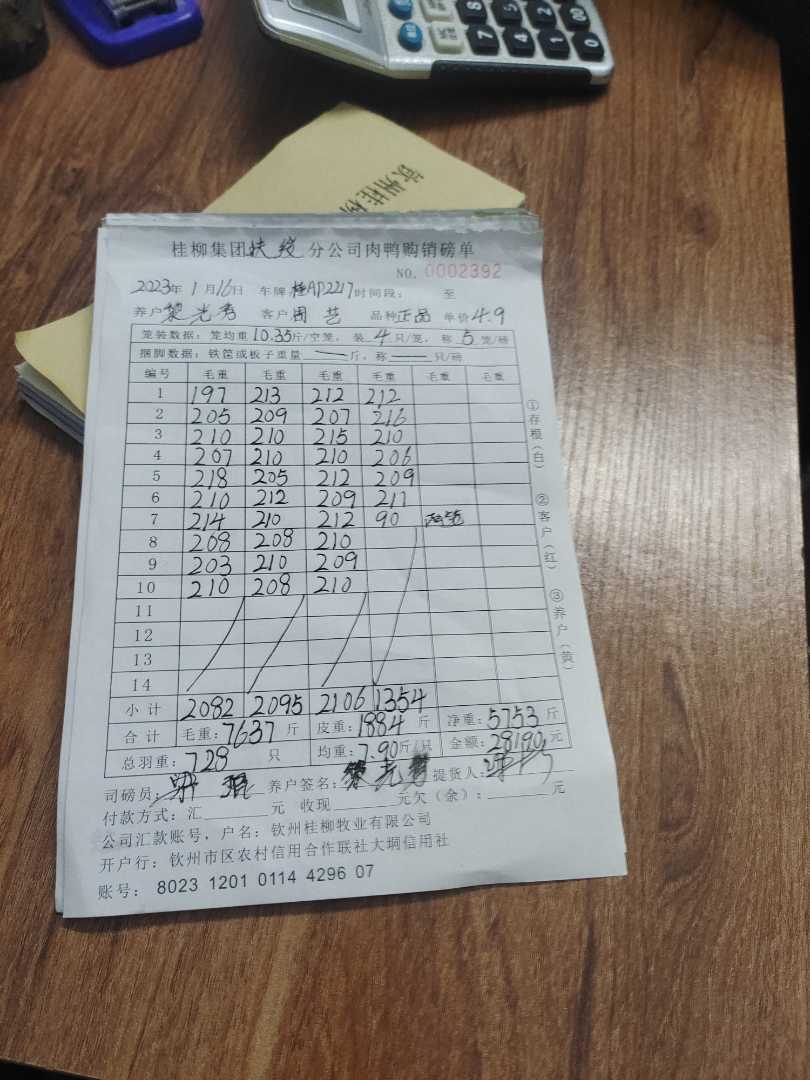 8 9
7
00
0
钦州桂柳
桂柳集团扶绥分公司肉鸭购销磅单
NO. 0002392
2023年 1月16日 车牌:桂AP2217 时间段: 至
养户 黎光秀 客户 周艺 品种 正品 单价 4.9
笼装数据:笼均重10.35斤/空笼,装 4 只/笼,称 5 笼/磅
捆脚数据:铁筐或板子重量 — 斤,称 — 只/磅
编号 毛重 毛重 毛重 毛重 毛重 毛重
1 197 213 212 212
2 205 209 207 216
3 210 210 215 210
4 207 210 210 206
5 218 205 212 209
6 210 212 209 211
7 214 210 212 90 两笼
8 208 208 210
9 203 210 209
10 210 208 210
11
12
13
14
小计 2082 2095 2106 1354
合计 毛重:7637 斤 皮重:1884 斤 净重:5753 斤
总羽重:728 只 均重:7.90斤/只 金额:28190元
司磅员: 养户签名:黎光秀 提货人:
付款方式:汇 元 收现 元欠(余): 元
公司汇款账号,户名:钦州桂柳牧业有限公司
开户行:钦州市区农村信用合作联社大垌信用社
账号: 8023 1201 0114 4296 07
①存根(白) ②客户(红) ③养户(黄)